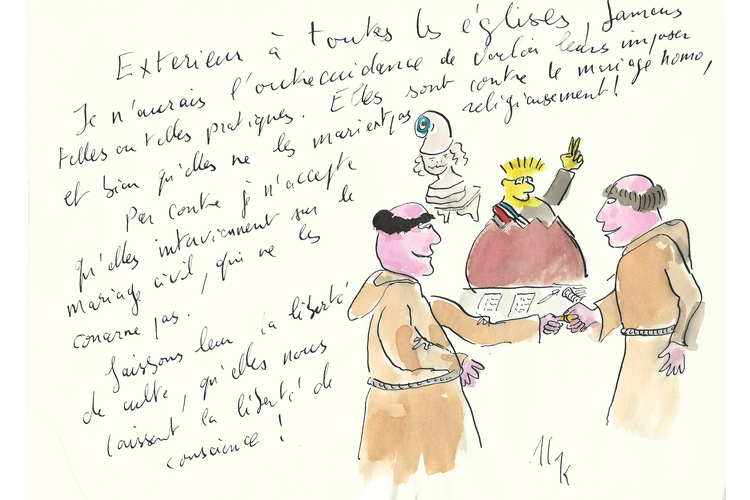 Exterieur à toutes les églises, Jamais
Je n'aurais l'outrecuidance de vouloir leurs imposer
telles ou telles pratiques. Elles sont contre le mariage homo,
et bien qu'elles ne les marient pas religieusement!
Par contre je n'accepte
qu'elles interviennent sur le
mariage civil, qui ne les
concerne pas.
Laissons leur la liberté
de culte, qu'elles nous
laissent la liberté de
conscience !